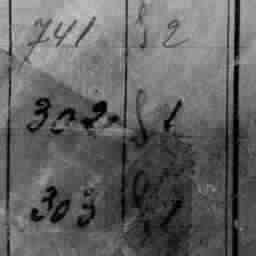 741 § 2
302 § 1
303 § 1